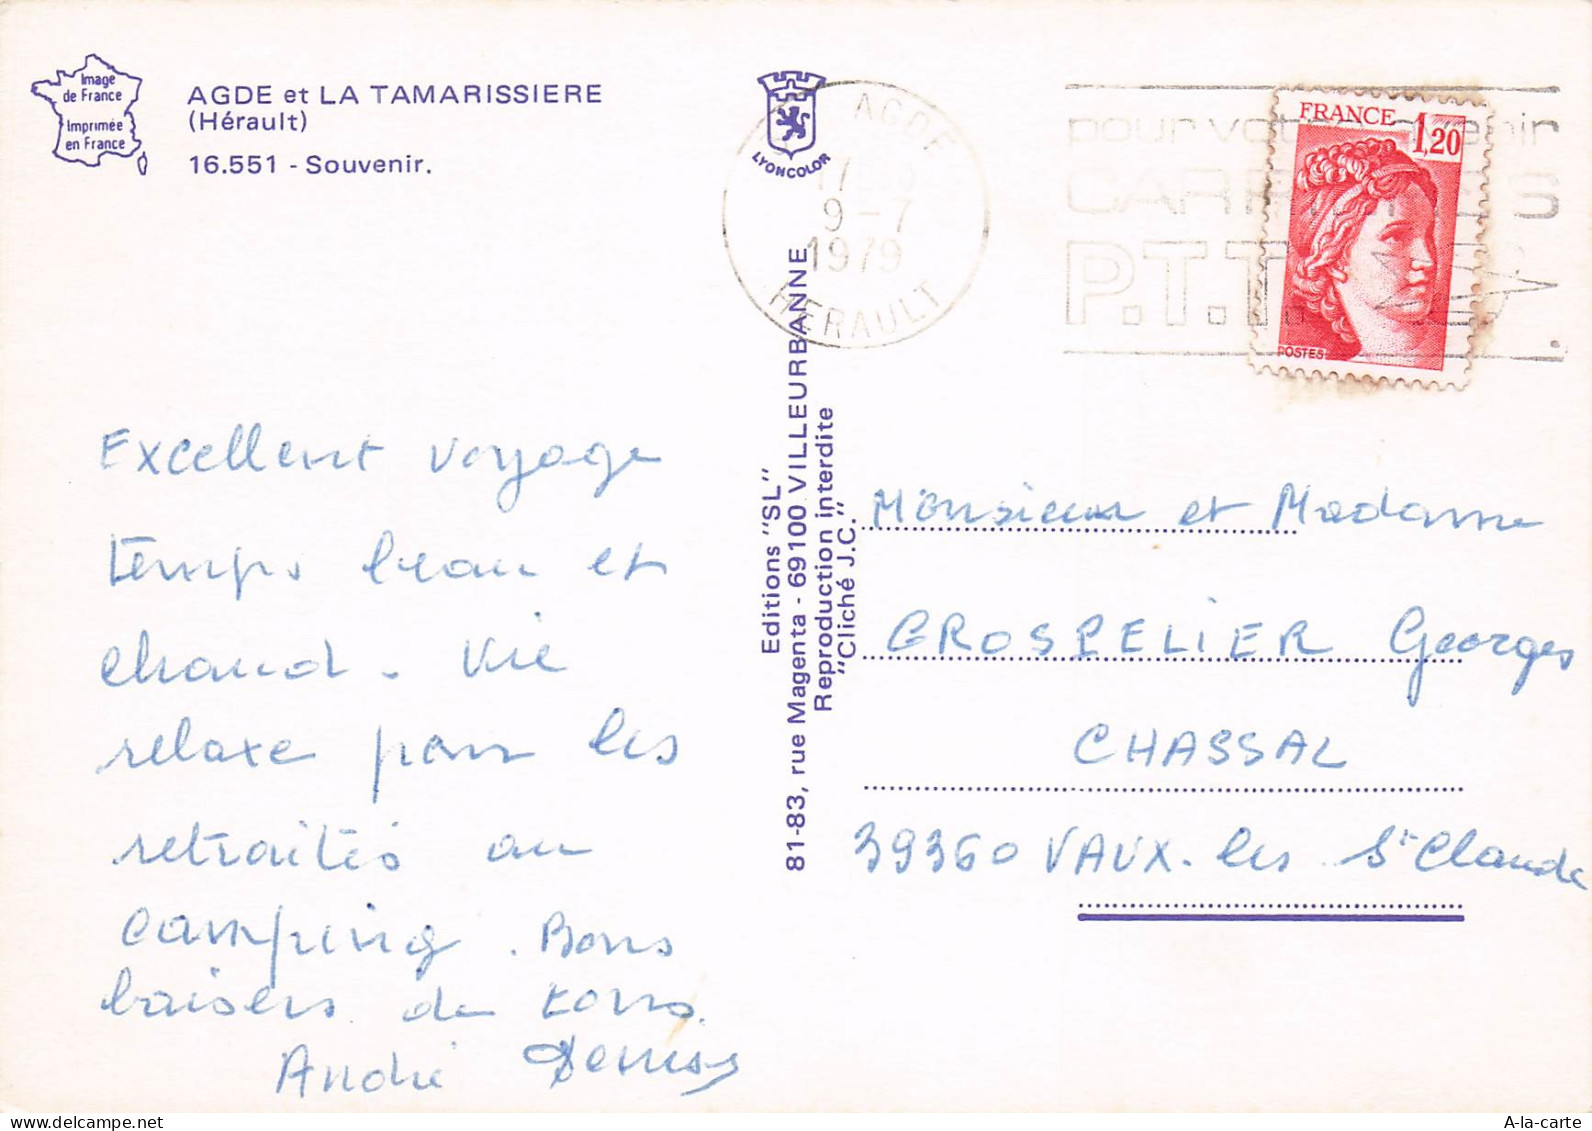 Image
de France
Imprimée
en France
AGDE et LA TAMARISSIERE
(Hérault)
16.551 - Souvenir.
LYONCOLOR
AGDE
9-7
1979
HERAULT
pour votre avenir
CARRIERES
P.T.T.
FRANCE
1,20
POSTES
Excellent voyage
temps beau et
chaud. Vie
relaxe pour les
retraités au
camping. Bons
baisers de tous.
André
Editions "SL"
81-83, rue Magenta - 69100 VILLEURBANNE
Reproduction interdite
"Cliché J.C."
Monsieur et Madame
GROSPELIER Georges
CHASSAL
39360 VAUX. les St Claude
A-la-carte